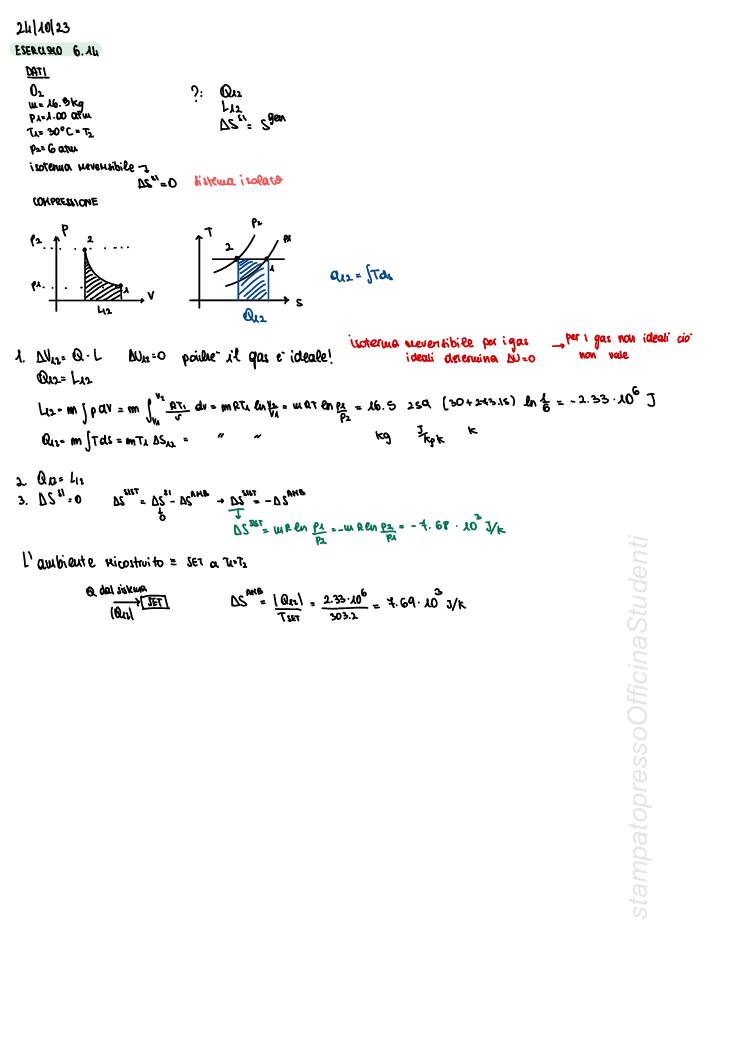 24/10/23
ESERCIZIO 6.14
DATI
O₂
m= 16.5 kg
p1=1.00 atm
T1= 30°C = T2
p2= 6 atm
?: Q12
L12
ΔS^SI = S^gen
isoterma reversibile →
ΔS^SI = 0 sistema isolato
COMPRESSIONE
P p2 2 p1 1 V L12
T p2 p1 2 1 s Q12
q12 = ∫Tds
1. ΔU12= Q - L ΔU12=0 poiché il gas è ideale!
isoterma reversibile per i gas ideali determina ΔU=0 → per i gas non ideali ciò non vale
Q12= L12
L12= m ∫ p dv = m ∫_V1^V2 RT1/v dv = m R T1 ln V2/V1 = m R T ln p1/p2 = 16.5 259 (30+273.15) ln 1/6 = -2.33·10⁶ J
Q12= m ∫Tds = mT1 ΔS12 = " "
kg J/kg K K
2. Q12= L12
3. ΔS^SI = 0 ΔS^SIST = ΔS^SI - ΔS^AMB → ΔS^SIST = -ΔS^AMB
0
ΔS^SIST = m R ln p1/p2 = -m R ln p2/p1 = -7.68·10³ J/K
L'ambiente ricostruito = SET a T1=T2
Q dal sistema
→ SET
|Q12|
ΔS^AMB = |Q12|/T_SET = 2.33·10⁶/303.2 = 7.69·10³ J/K
stampatopressoOfficinaStudenti